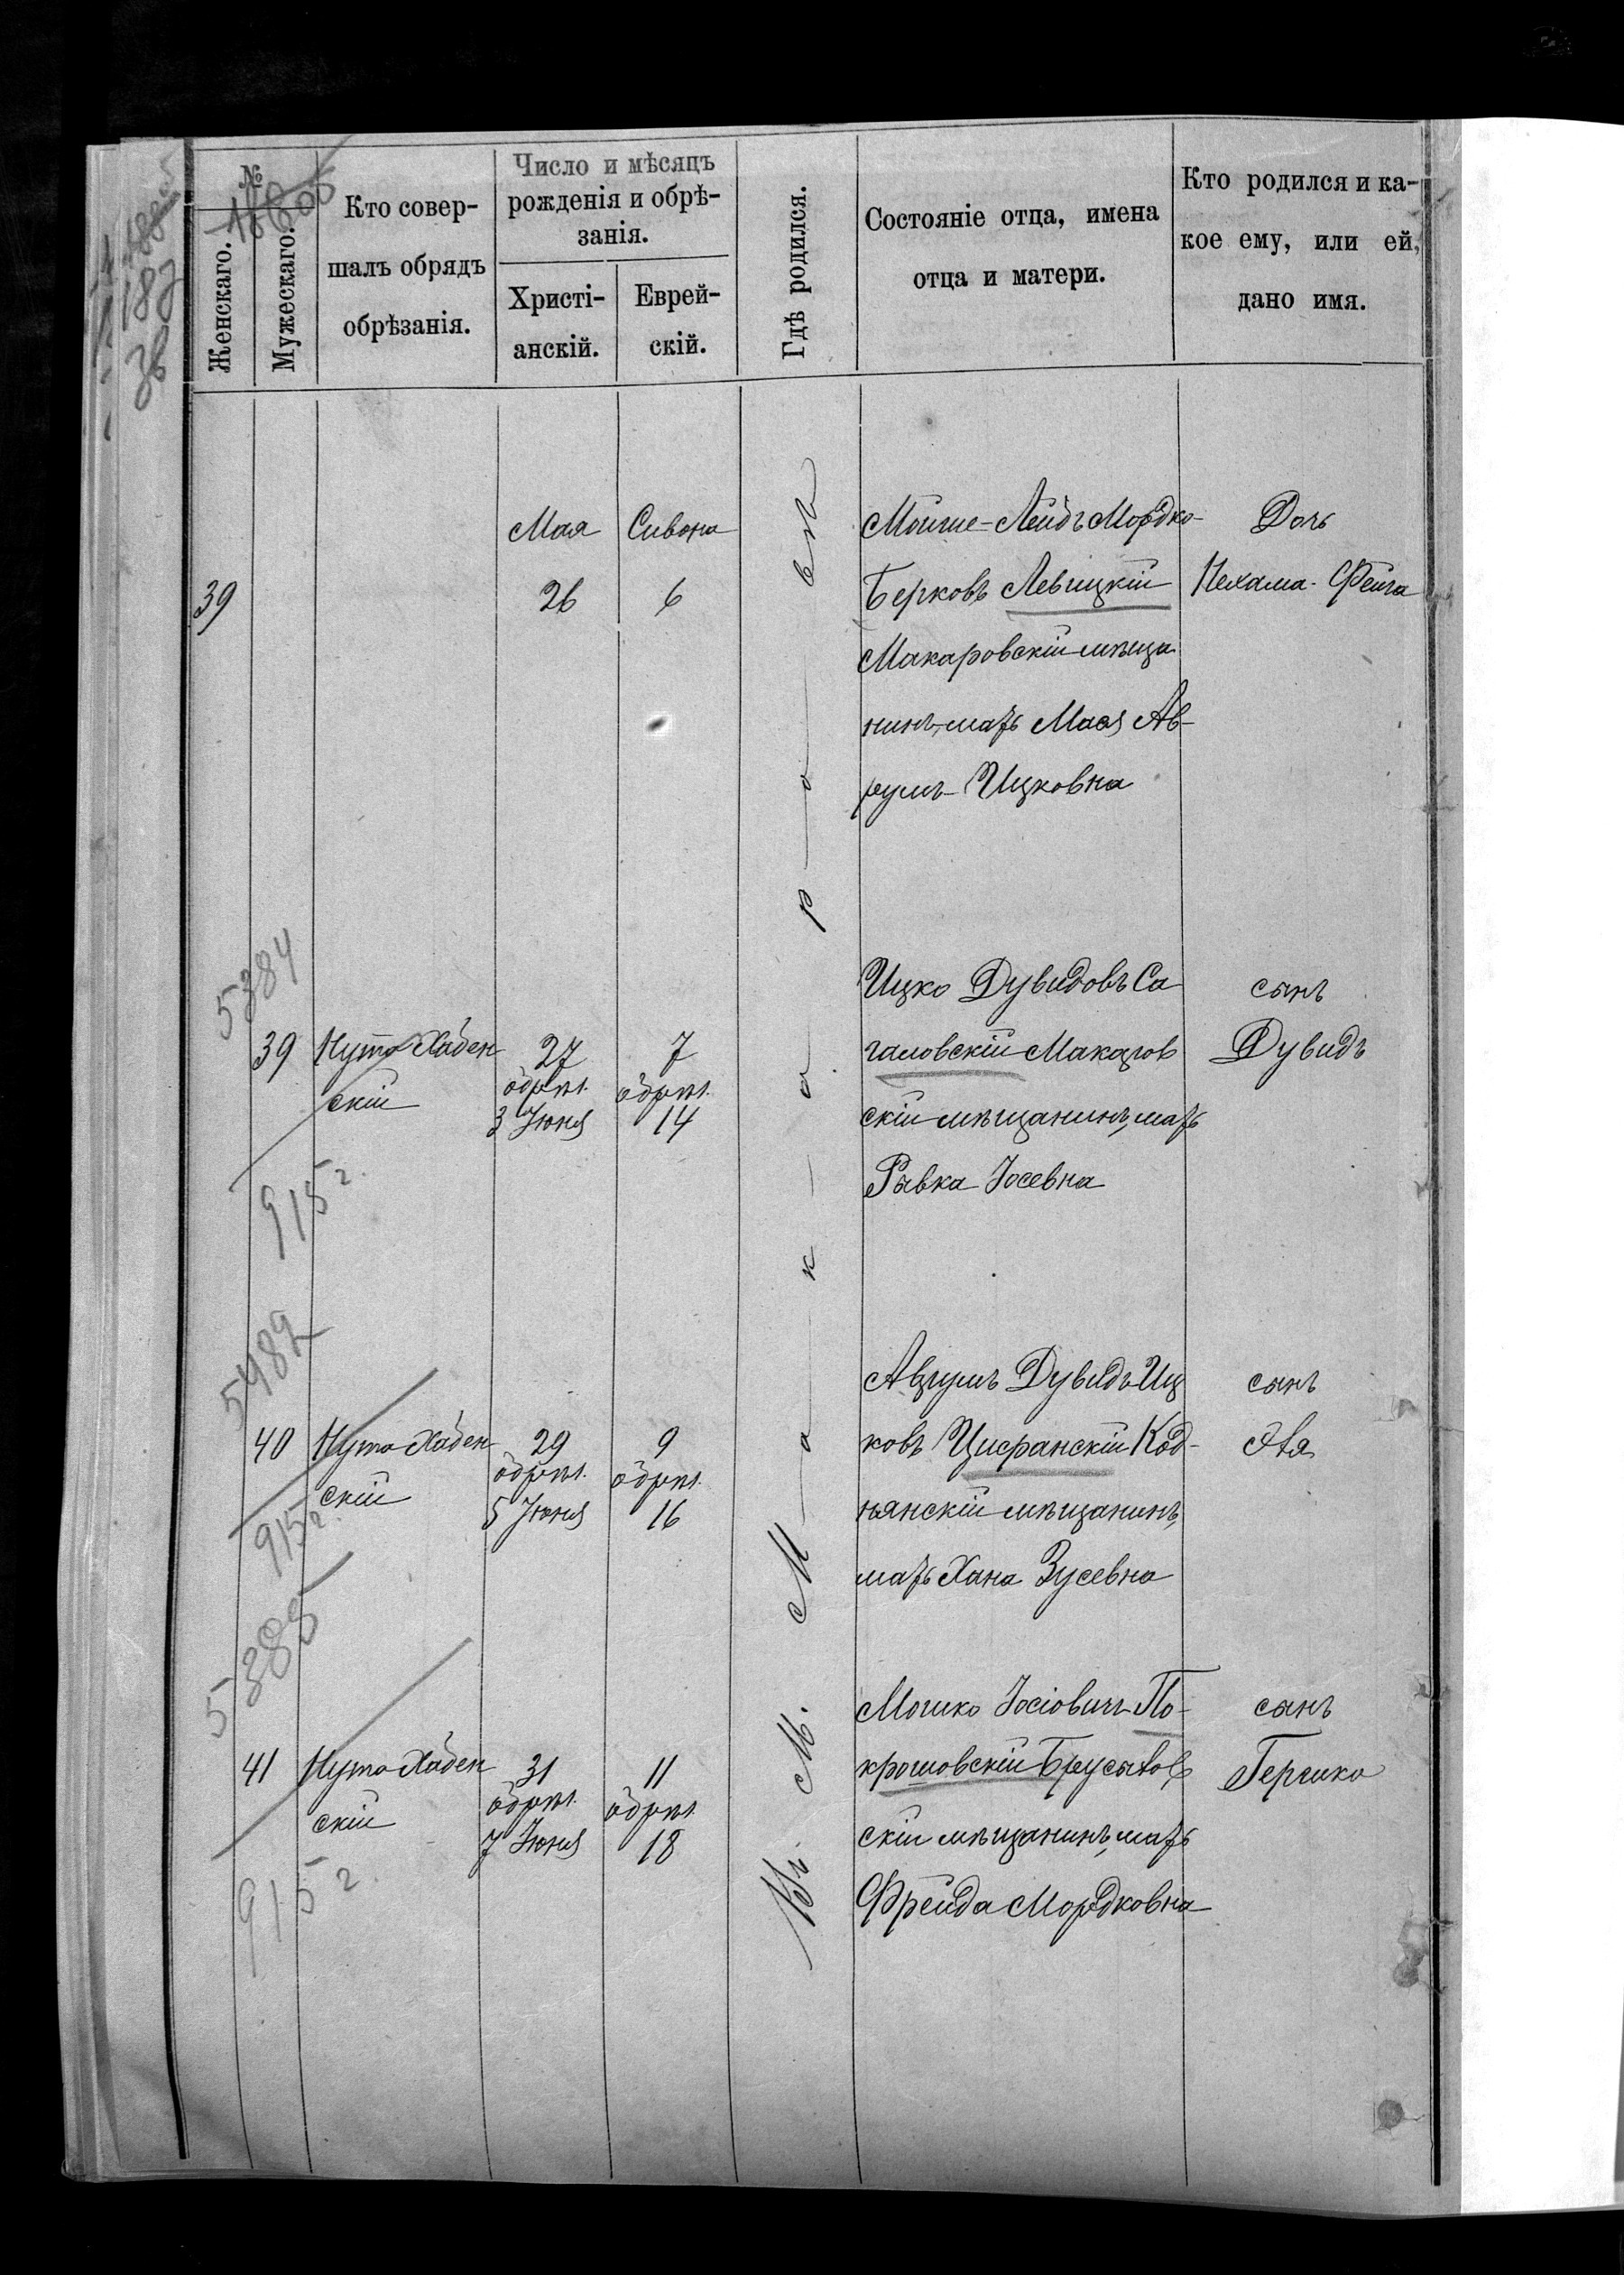 №
Женскаго.
Мужескаго.
Кто совер-
шалъ обрядъ
обрѣзанія.
Число и мѣсяцъ
рожденія и обрѣ-
занія.
Христі-
анскій.
Еврей-
скій.
Гдѣ родился.
Состояніе отца, имена
отца и матери.
Кто родился и ка-
кое ему, или ей,
дано имя.
Въ М. Макаровѣ
39
Мая
26
Сивона
6
Мойше-Лейбъ Мордко-
Берковъ Левицкій
Макаровскій мѣща
нинъ, мать Мася Ав-
румъ-Ицковна
Дочь
Нехама-Фейга
5384
39
Нута Хабен
скій
27
обрѣз.
3 Іюня
7
обрѣз.
14
Ицко Дувидовъ Са
галовскій Макаров
скій мѣщанинъ, мать
Рывка Іосевна
сынъ
Дувидъ
915 г.
5482
40
Нута Хабен
скій
29
обрѣз.
5 Іюня
9
обрѣз.
16
Аврумъ Дувидъ Иц
ковъ Цифранскій Код-
нянскій мѣщанинъ,
мать Хана Зусевна
сынъ
915 г.
5388
41
Нута Хабен
скій
31
обрѣз.
7 Іюня
11
обрѣз.
18
Мошко Іосіовичъ По-
крошовскій Брусилов
скій мѣщанинъ, мать
Фрейда Мордковна
сынъ
Гершко
915 г.